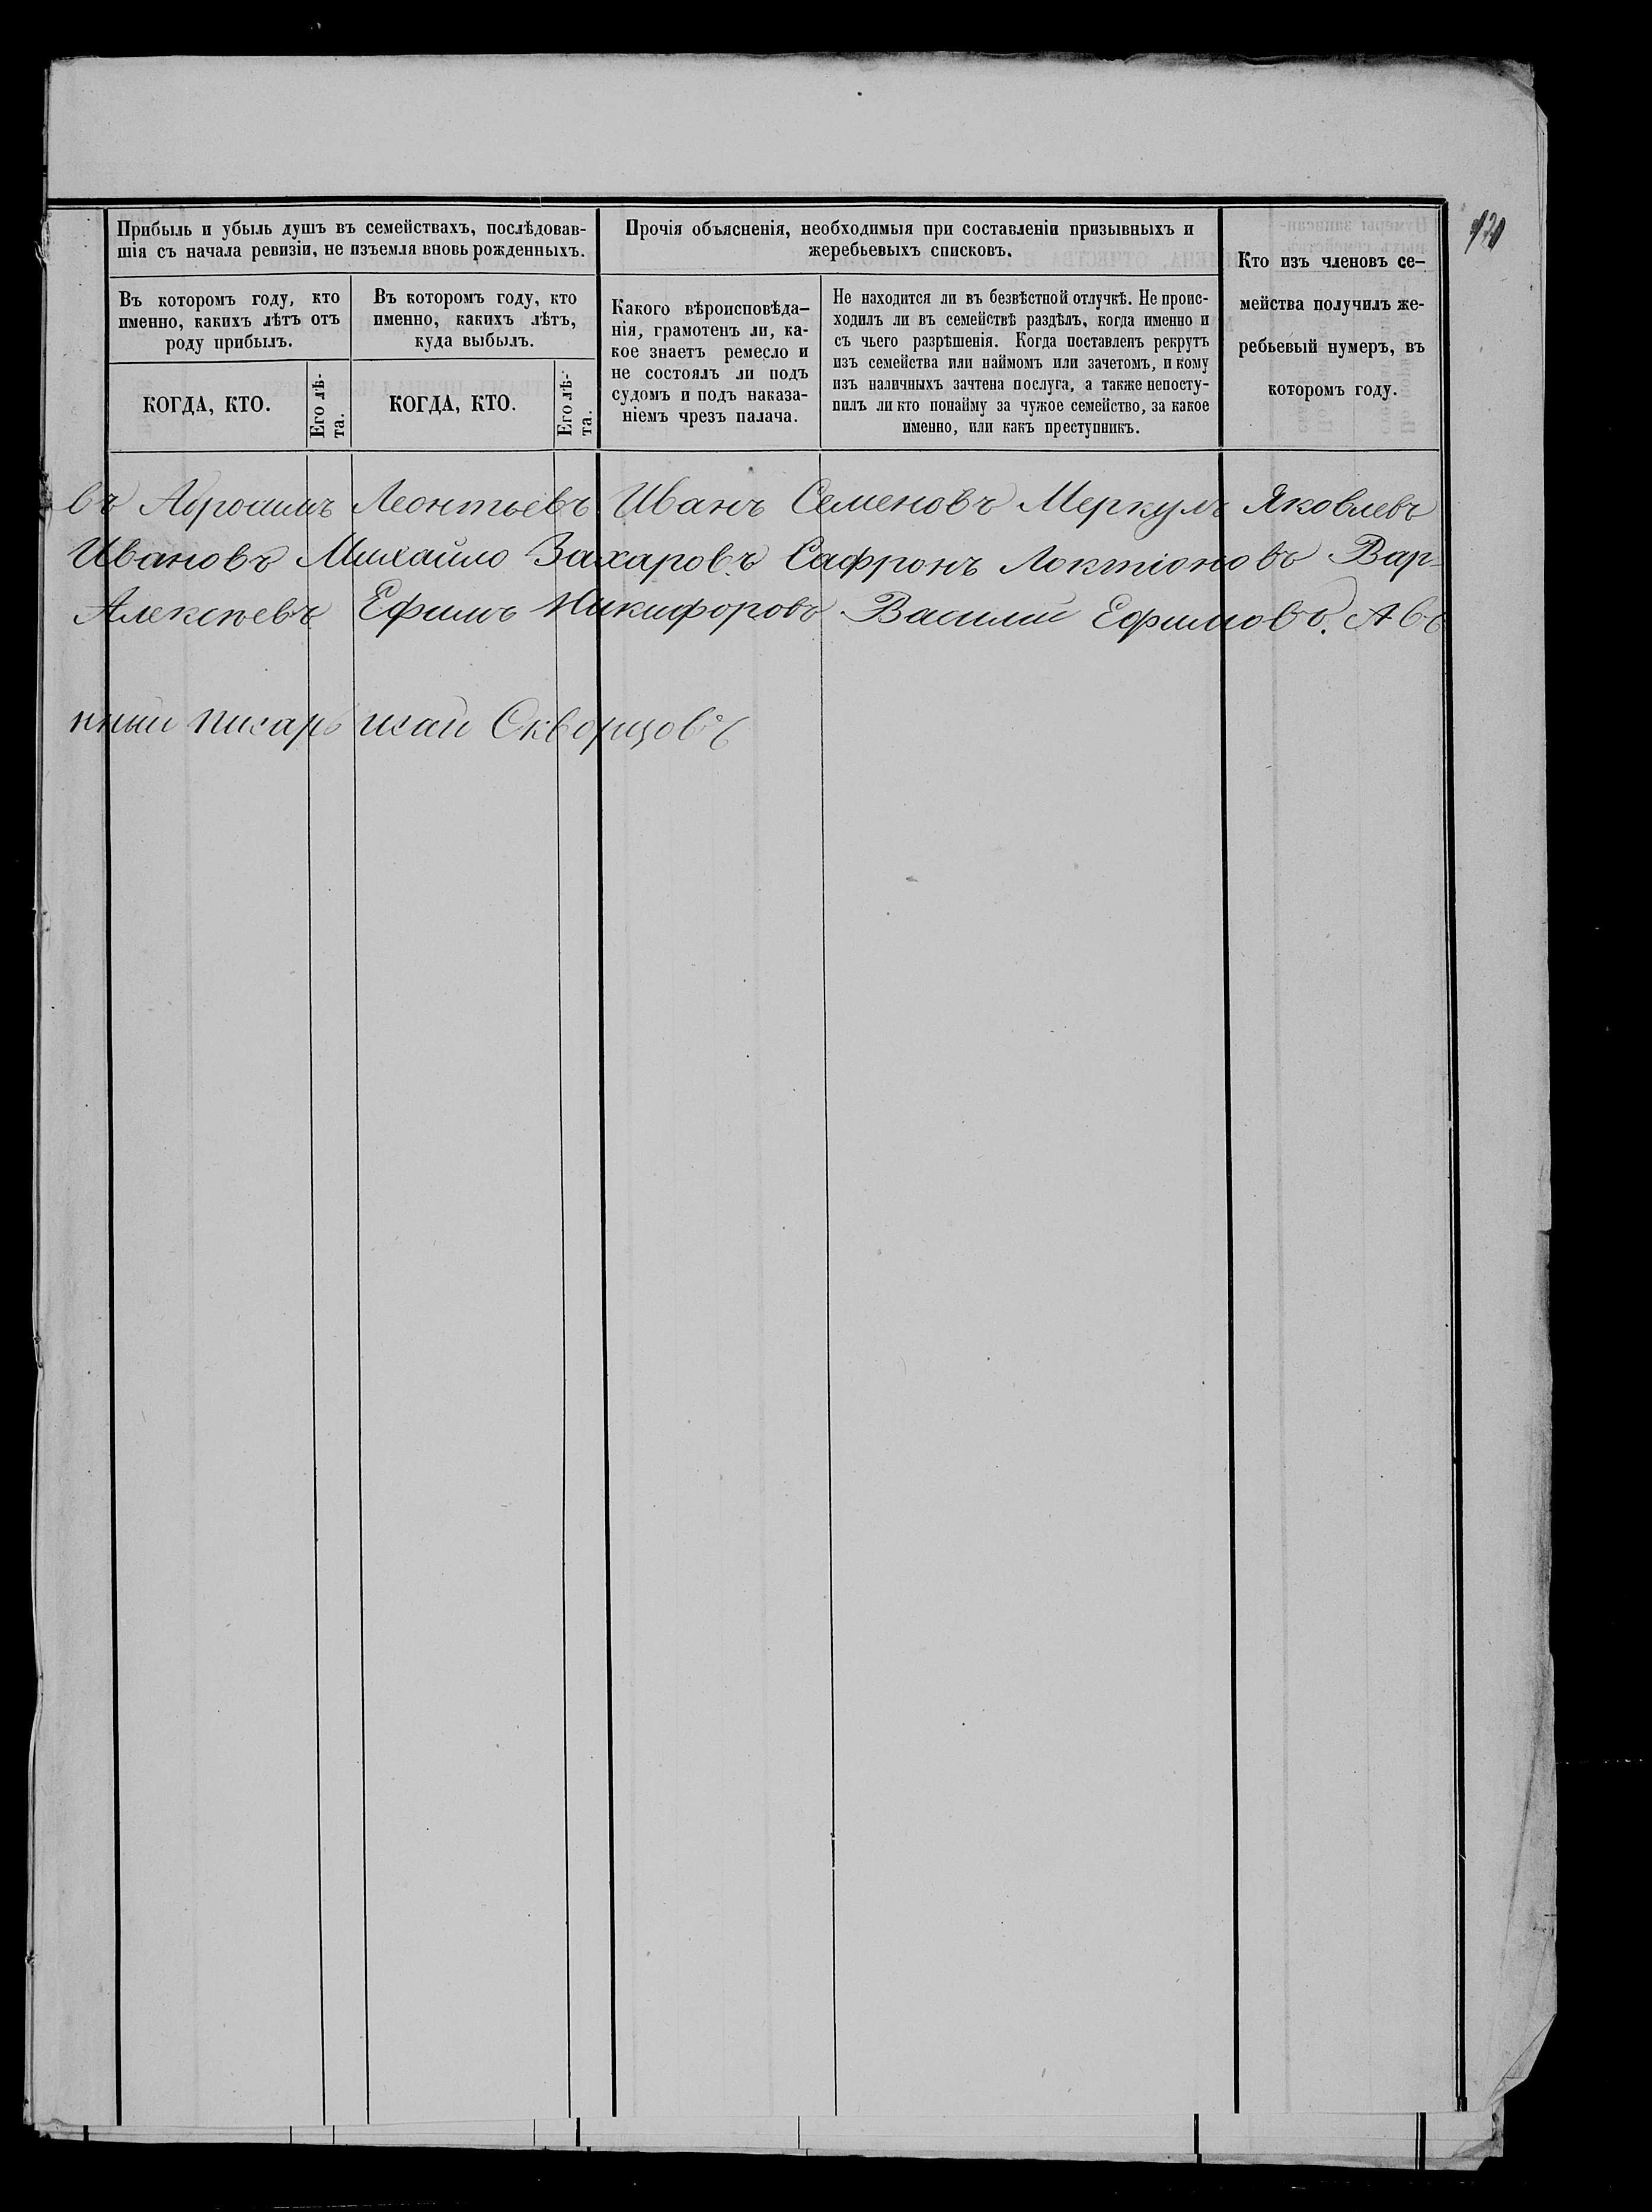 Прибыль и убыль душъ въ семействахъ, послѣдовав-
шія съ начала ревизіи, не изъемля вновь рожденныхъ.
Въ которомъ году, кто
именно, какихъ лѣтъ отъ
роду прибылъ.
КОГДА, КТО.
Его лѣ-
та.
Въ которомъ году, кто
именно, какихъ лѣтъ,
куда выбылъ.
КОГДА, КТО.
Его лѣ-
та.
Прочія объясненія, необходимыя при составленіи призывныхъ и
жеребьевыхъ списковъ.
Какого вѣроисповѣда-
нія, грамотенъ ли, ка-
кое знаетъ ремесло и
не состоялъ ли подъ
судомъ и подъ наказа-
ніемъ чрезъ палача.
Не находится ли въ безвѣстной отлучкѣ. Не проис-
ходилъ ли въ семействѣ раздѣлъ, когда именно и
съ чьего разрѣшенія. Когда поставленъ рекрутъ
изъ семейства или наймомъ или зачетомъ, и кому
изъ наличныхъ зачтена послуга, а также непосту-
пилъ ли кто понайму за чужое семейство, за какое
именно, или какъ преступникъ.
Кто изъ членовъ се-
мейства получилъ же-
ребьевый нумеръ, въ
которомъ году.
въ Абросимъ Леонтьевъ Иванъ Семеновъ Меркулъ Яковлевъ
Ивановъ Михайло Захаровъ Сафронъ Локтіоновъ Вар-
Алексѣевъ Ефимъ Никифоровъ Василій Ефимовъ. Ав
нный писарь Скворцовъ